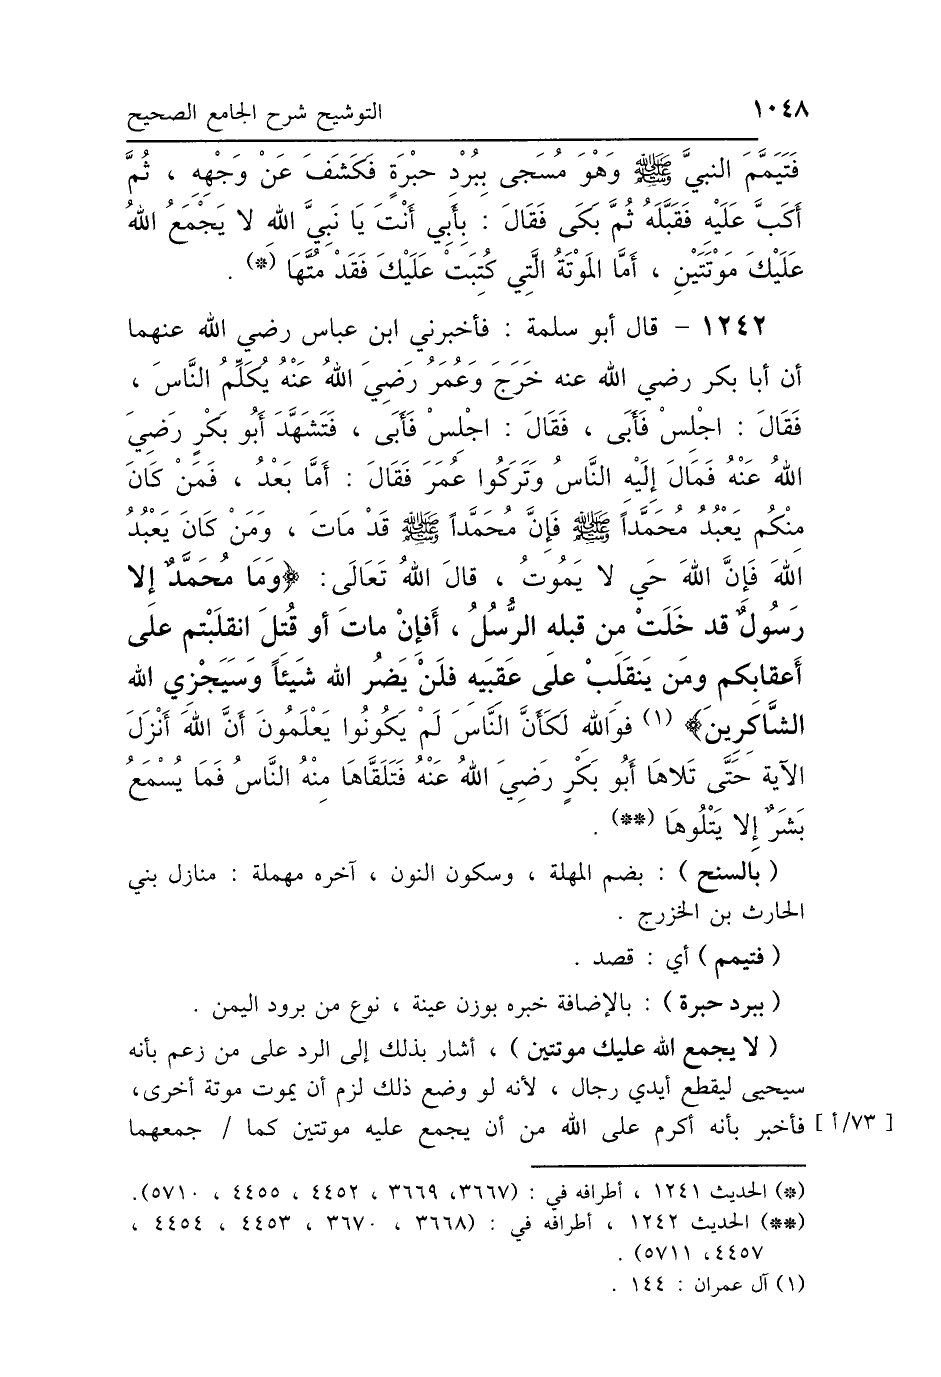 ١٠٤٨ التوشيح شرح الجامع الصحيح
فَتَيَمَّمَ النبيَّ ﷺ وَهْوَ مُسَجى بِبُرْدِ حِبْرَةٍ فَكَشَفَ عَنْ وَجْهِهِ ، ثُمَّ
أَكَبَّ عَلَيْهِ فَقَبَّلَهُ ثُمَّ بَكَى فَقَالَ : بِأَبِي أَنْتَ يَا نَبِيَّ اللهِ لا يَجْمَعُ اللهُ
عَلَيْكَ مَوْتَتَيْنِ ، أَمَّا المَوْتَةُ الَّتِي كُتِبَتْ عَلَيْكَ فَقَدْ مُتَّهَا (*) .
١٢٤٢ - قال أبو سلمة : فأخبرني ابن عباس رضي الله عنهما
أن أبا بكر رضي الله عنه خَرَجَ وَعُمَرُ رَضِيَ اللهُ عَنْهُ يُكَلِّمُ النَّاسَ ،
فَقَالَ : اجْلِسْ فَأَبَى ، فَقَالَ : اجْلِسْ فَأَبَى ، فَتَشَهَّدَ أَبُو بَكْرٍ رَضِيَ
اللهُ عَنْهُ فَمَالَ إِلَيْهِ النَّاسُ وَتَرَكُوا عُمَرَ فَقَالَ : أَمَّا بَعْدُ ، فَمَنْ كَانَ
مِنْكُم يَعْبُدُ مُحَمَّداً ﷺ فَإِنَّ مُحَمَّداً ﷺ قَدْ مَاتَ ، وَمَنْ كَانَ يَعْبُدُ
اللهَ فَإِنَّ اللهَ حَي لا يَمُوتُ ، قالَ اللهُ تَعَالَى : ﴿وَمَا مُحمَّدٌ إلا
رَسُولٌ قد خَلَتْ مِن قبلِه الرُّسُلُ ، أَفإِنْ ماتَ أو قُتِلَ انقلَبْتم على
أَعقابِكم ومَن يَنقَلِبْ على عَقبَيه فلَنْ يَضُر الله شَيئاً وَسَيَجْزي الله
الشَّاكرِينَ﴾ (١) فوَالله لَكَأَنَّ النَّاسَ لَمْ يَكُونُوا يَعْلَمُونَ أَنَّ اللهَ أَنْزَلَ
الآيةَ حَتَّى تَلاهَا أَبُو بَكْرٍ رَضِيَ اللهُ عَنْهُ فَتَلَقَّاهَا مِنْهُ النَّاسُ فَمَا يُسْمَعُ
بَشَرٌ إِلا يَتْلُوهَا (**) .
( بالسنح ) : بضم المهلة ، وسكون النون ، آخره مهملة : منازل بني
الحارث بن الخزرج .
( فتيمم ) أي : قصد .
( ببرد حبرة ) : بالإضافة خبره بوزن عينة ، نوع من برود اليمن .
( لا يجمع الله عليك موتتين ) ، أشار بذلك إلى الرد على من زعم بأنه
سيحيى ليقطع أيدي رجال ، لأنه لو وضع ذلك لزم أن يموت موتة أخرى،
[ ٧٣/أ ] فأخبر بأنه أكرم على الله من أن يجمع عليه موتتين كما / جمعهما
(*) الحديث ١٢٤١ ، أطرافه في : (٣٦٦٧، ٣٦٦٩ ، ٤٤٥٢ ، ٤٤٥٥ ، ٥٧١٠).
(**) الحديث ١٢٤٢ ، أطرافه في : (٣٦٦٨ ، ٣٦٧٠ ، ٤٤٥٣ ، ٤٤٥٤ ،
٤٤٥٧، ٥٧١١) .
(١) آل عمران : ١٤٤ .